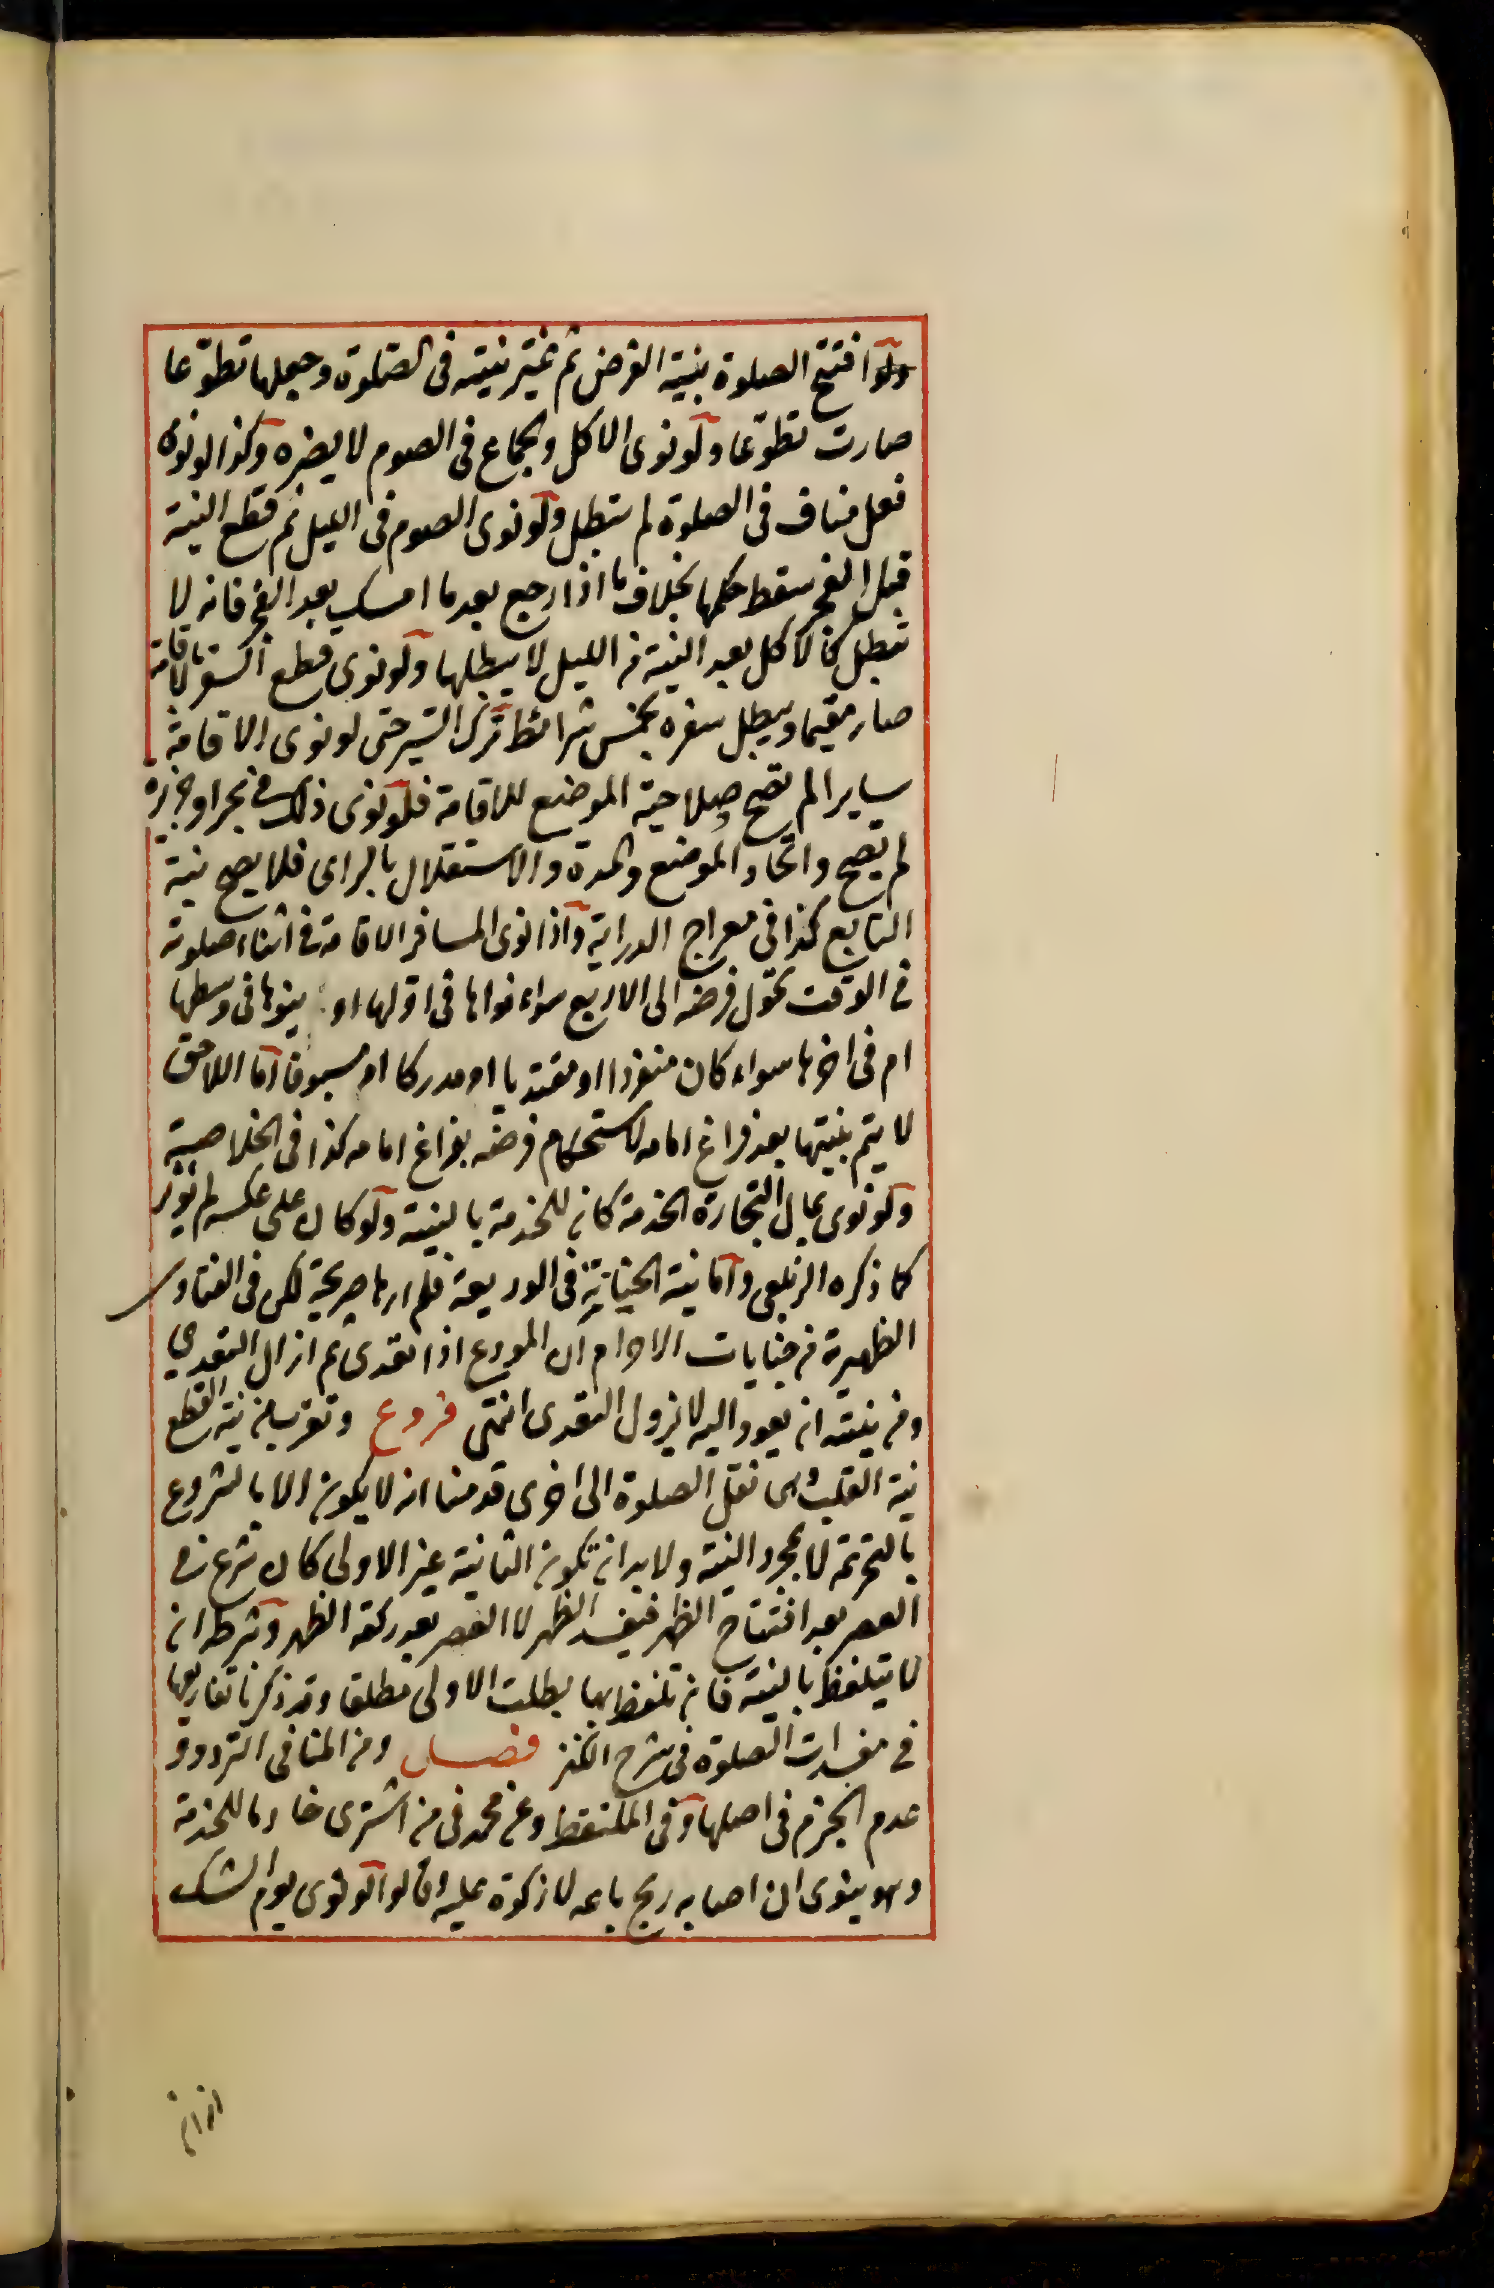 ولو افتتح الصلوة بنية الفرض ثم غير نيته فى الصلوة وجعلها تطوعا
صارت تطوعا ولو نوى الاكل والجماع فى الصوم لا يضره وكذا لو نوى
فعل مناف فى الصلوة لم تبطل ولو نوى الصوم فى الليل ثم قطع النية
قبل الفجر سقط حكمها بخلاف ما اذا رجع بعد ما امسك بعد الفجر فانه لا
تبطل كالاكل بعد النية من الليل لا يبطلها ولو نوى قطع السفر بالاقامة
صار مقيما ويبطل سفره بخمس شرائط ترك السير حتى لو نوى الاقامة
سايرا لم تصح وصلاحية الموضع للاقامة فلو نوى ذلك فى بحر او جزيرة
لم تصح واتحاد الموضع والمدة والاستقلال بالراى فلا يصح نية
التابع كذا فى معراج الدراية واذا نوى المسافر الاقامة فى اثناء صلوته
فى الوقت تحول فرضه الى الاربع سواء نواها فى اولها او ينوها فى وسطها
ام فى اخرها سواء كان منفردا او مقتديا او مدركا او مسبوقا اما اللاحق
لا يتم بنيتها بعد فراغ امامه لاستحكام فرضه بفراغ امامه كذا فى الخلاصة
ولو نوى بمال التجارة الخدمة كان للخدمة بالنية ولو كان على عكسه لم يؤثر
كما ذكره الزيلعى واما نية الخيانة فى الوديعة فلم ارها صريحة لكن فى الفتاوى
الظهيرية من جنايات الاحرام ان المودع اذا تعدى ثم ازال التعدى
ومن نيته ان يعود اليه لا يزول التعدى انتهى فروع وتقرب من نية القطع
نية القلب وهى نقل الصلوة الى اخرى قدمنا انه لا يكون الا بالشروع
بالتحريمة لا بمجرد النية ولا بد ان تكون الثانية غير الاولى كان شرع فى
العصر بعد افتتاح الظهر فيفسد الظهر لا الظهر بعد ركعة الظهر وشرطه ان
لا يتلفظ بالنية فان تلفظ بها بطلت الاولى مطلقا وقد ذكرنا تفاريعها
فى مفسدات الصلوة فى شرح الكنز فصل ومن المنافى التردد و
عدم الجزم فى اصلها وفى الملتقط وعن محمد فى من اشترى خادما للخدمة
وهو ينوى ان اصابه ربح باعه لا زكوة عليه وقالوا لو نوى يوم الشك